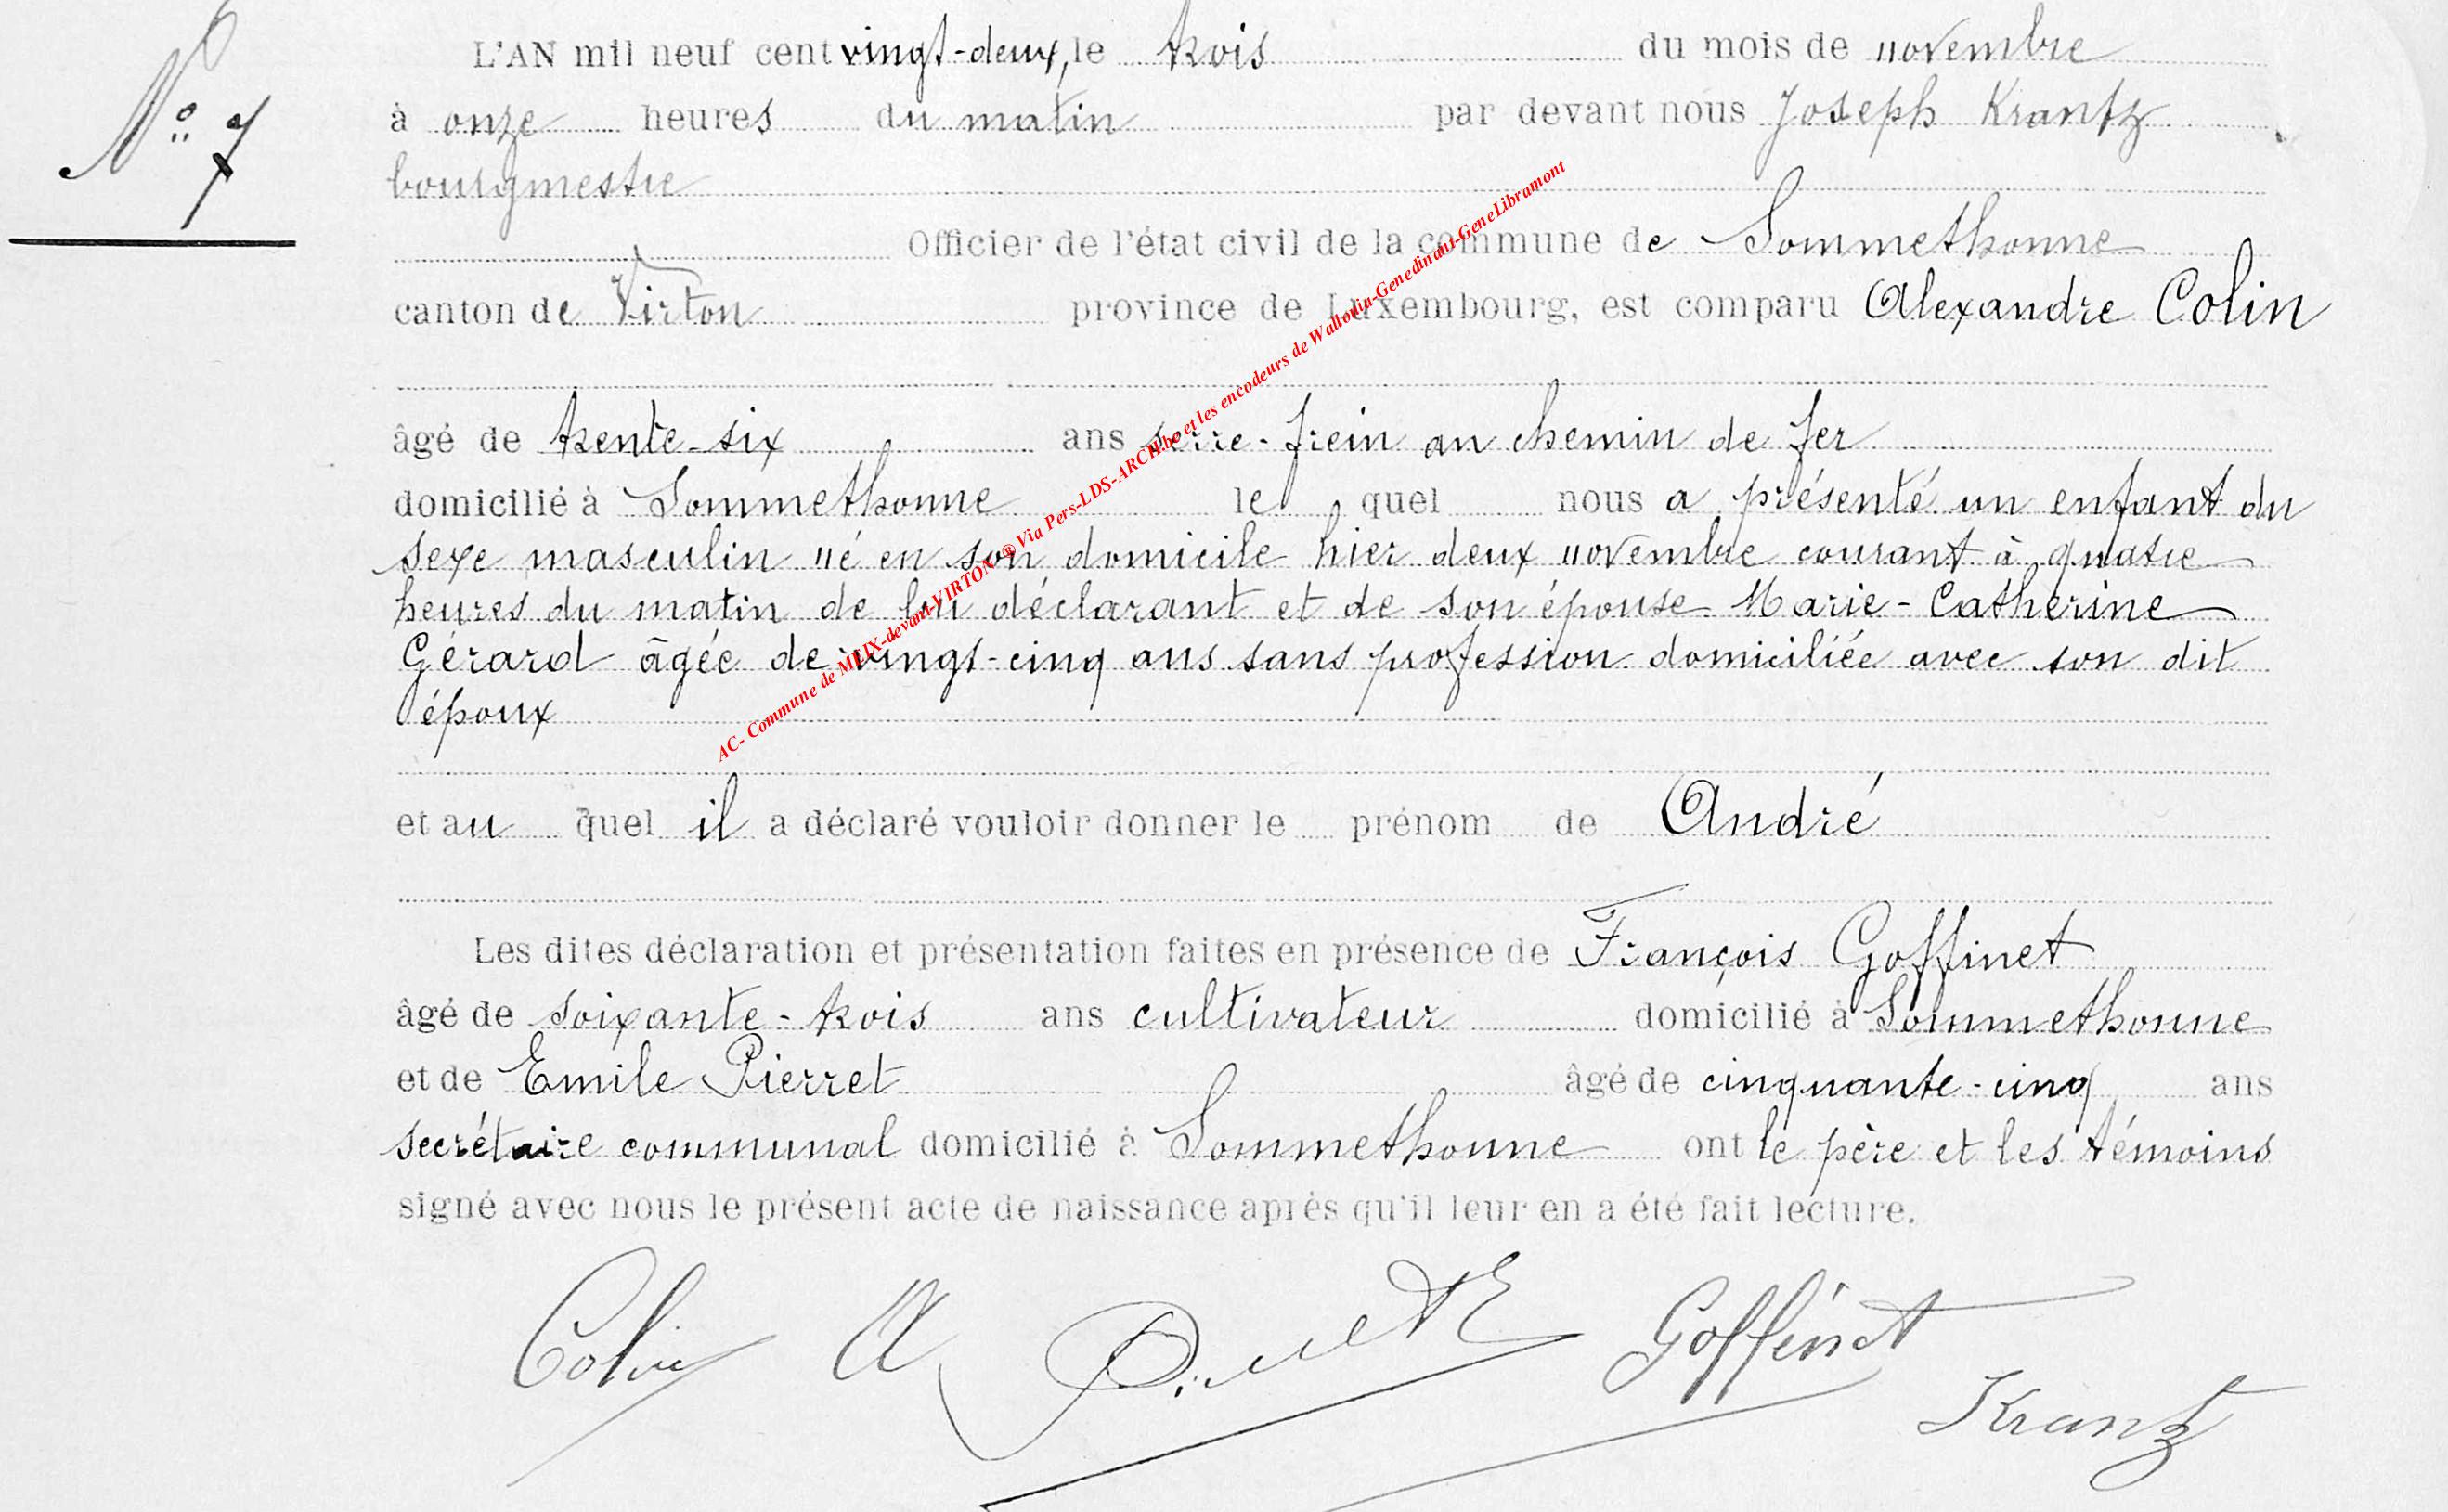 Nº 7
L'AN mil neuf cent vingt-deux, le trois du mois de novembre
à onze heures du matin par devant nous Joseph Krantz
bourgmestre
Officier de l'état civil de la commune de Sommethonne
canton de Virton province de Luxembourg, est comparu Alexandre Colin
âgé de trente-six ans serre-frein au chemin de fer
domicilié à Sommethonne le quel nous a présenté un enfant du
sexe masculin né en son domicile hier deux novembre courant à quatre
heures du matin de lui déclarant et de son épouse Marie-Catherine
Gérard âgée de vingt-cinq ans sans profession domiciliée avec son dit
époux
et au quel il a déclaré vouloir donner le prénom de André
Les dites déclaration et présentation faites en présence de François Goffinet
âgé de soixante-trois ans cultivateur domicilié à Sommethonne
et de Emile Pierret âgé de cinquante-cinq ans
secrétaire communal domicilié à Sommethonne ont le père et les témoins
signé avec nous le présent acte de naissance après qu'il leur en a été fait lecture.
Colin A Goffinet
Krantz
AC- Commune de MEIX-devant-VIRTON ® Via Pers-LDS-ARCH.be et les encodeurs de Wallonia-Genedinant-GeneLibramont